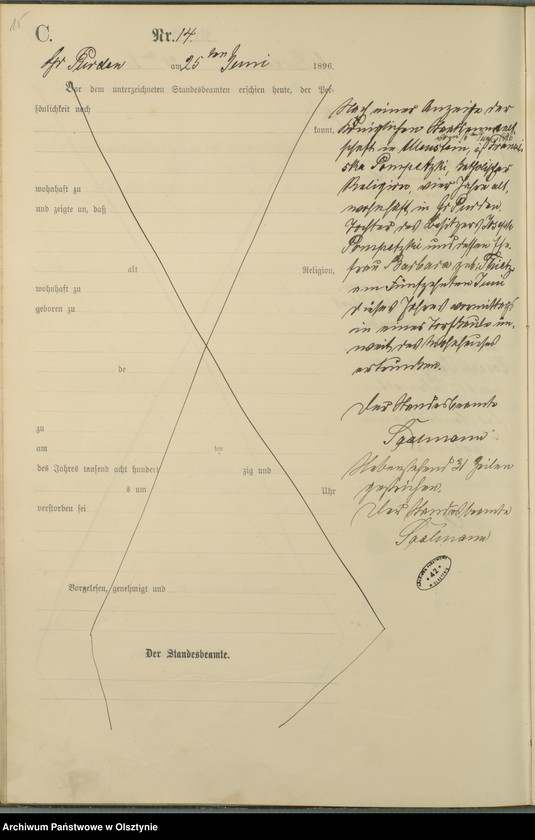 15
C.
Nr. 14.
Gr Purden am 25 ten Juni 1896.
Vor dem unterzeichneten Standesbeamten erschien heute, der Per-
sönlichkeit nach
kannt,
wohnhaft zu
und zeigte an, daß
alt Religion,
wohnhaft zu
geboren zu
de
zu
am ten
des Jahres tausend acht hundert zig und
s um Uhr
verstorben sei
Vorgelesen, genehmigt und
Der Standesbeamte.
Nach einer Anzeige der
Königlichen Staatsanwalt
schaft in Allenstein, ist Franzis
ka Pompetzki, katholischer
Religion, vier Jahre alt,
wohnhaft in Gr Purden,
Tochter des Besitzers Joseph
Pompetzki und dessen Ehe
frau Barbara geb.
am fünfzehnten Juni
dieses Jahres vormittags
in einer Torfkaule un-
weit des Wohnhauses
ertrunken.
Der Standesbeamte
Saalmann
Nebenstehend 31 Zeilen
gestrichen.
Der Standesbeamte
Saalmann
42
Archiwum Państwowe w Olsztynie